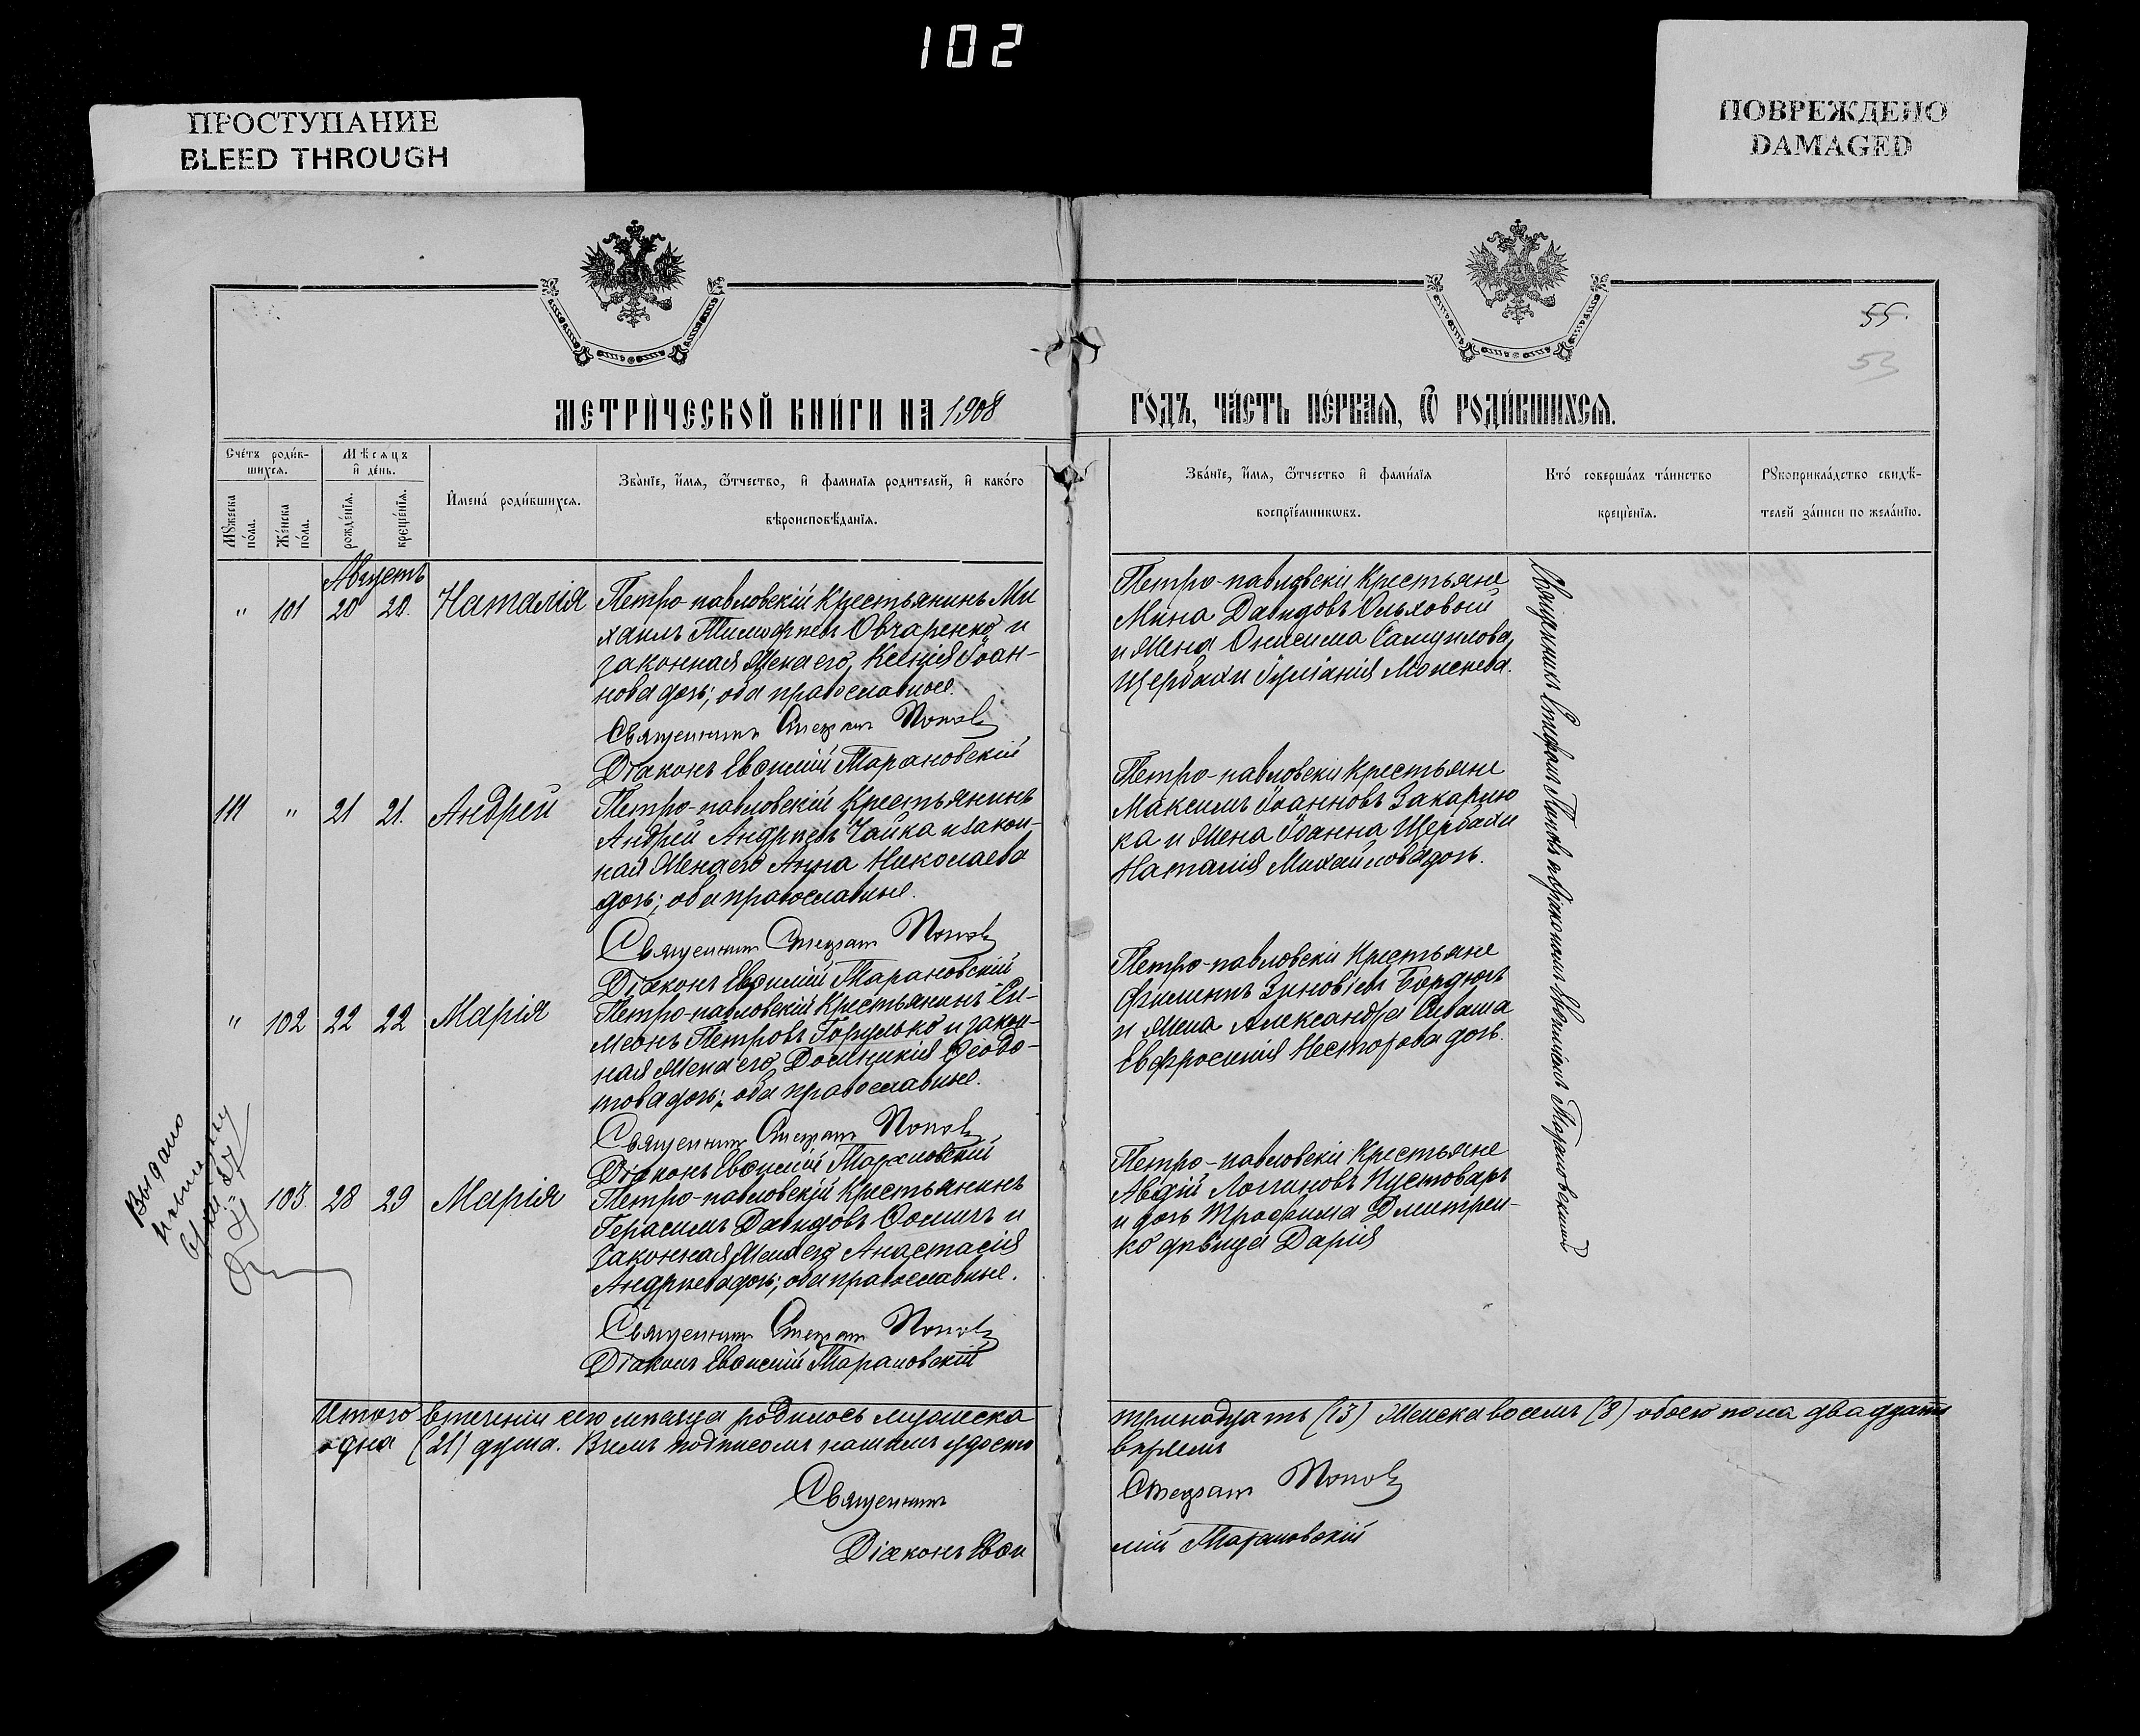 102
ПРОСТУПАНИЕ
BLEED THROUGH
ПОВРЕЖДЕНО
DAMAGED
55.
53
МЕТРИ́ЧЕСКОЙ КНИ́ГИ НА 1908
ГО́ДЪ, ЧА́СТЬ ПЕ́РВАѦ, Ѽ РОДИ́ВШИХСѦ.
Сче́тъ роди́в-
шихсѧ.
Мѣ́сѧцъ
и҆ де́нь.
Мꙋ́жеска
по́ла.
Же́нска
по́ла.
рожде́нїѧ.
креще́нїѧ.
И҆мена̀ роди́вшихсѧ.
Зва́нїе, и҆́мѧ, ѻ҆́тчество, и҆ фамилїѧ родителей, и҆ како́го
вѣроисповѣ́данїѧ.
Зва́нїе, и҆́мѧ, ѻ҆́тчество и҆ фами́лїѧ
воспрїе́мникѡвъ.
Кто́ соверша́лъ та́инство
креще́нїѧ.
Рꙋкоприкла́дство свидѣ́-
телей за́писи по жела́нїю.
Августъ
" 101 20 20. Наталія
Петро-павловскій Крестьянинъ Ми
хаилъ Тимофѣевъ Овчаренко и
законная Жена его, Ксенія Іоан-
нова дочь; оба православные.
Священникъ Стефанъ Поповъ
Діаконъ Евѳимій Тарановскій
Петро-павловскіи Крестьяне
Мина Давидовъ Ольховой
и Жена Онисима Самуилова
Щербахи Іуліанія Моисеева.
111 " 21 21. Андрей
Петро-павловскій Крестьянинъ
Андрей Андреевъ Чайка и закон-
ная Жена его Анна Николаева
дочь; оба православные.
Священникъ Стефанъ Поповъ
Діаконъ Евѳимій Тарановскій
Петро-павловскіи Крестьяне
Максимъ Іоанновъ Захарчен
ка и Жена Іоанна Щербахи
Наталія Михайлова дочь.
" 102 22 22 Марія
Петро-павловскій Крестьянинъ Си-
меонъ Петровъ Горулько и закон-
ная Жена его, Домникія Ѳеодо-
това дочь; оба православные.
Священникъ Стефанъ Поповъ
Діаконъ Евѳимій Тарановскій
Петро-павловскіи Крестьяне
Филиппъ Зиновіевъ Бордюгъ
и Жена Александра Сиваша
Евфросинія Несторова дочь.
Выдано
103. 28 29 Марія
Петро-павловскій Крестьянинъ
Герасимъ Давидовъ Ѳоминъ и
Законная Жена его Анастасія
Андреева дочь; оба православные.
Священникъ Стефанъ Поповъ
Діаконъ Евѳимій Тарановскій
Петро-павловскіи Крестьяне
Авдій Логиновъ Пустоваръ
и дочь Трофима Дмитрен-
ко дѣвица Дарія
Священникъ Стефанъ Поповъ съ діакономъ Евѳиміемъ Тарановскимъ
Итого въ теченіи сего мѣсяца родилось мужеска
тринадцать (13) Женска восемь (8) обоего пола двадцать
одна (21) душа. В чемъ подписомъ нашимъ удосто
вѣряемъ
Священникъ
Стефанъ Поповъ
Діаконъ Евѳи
мій Тарановскій